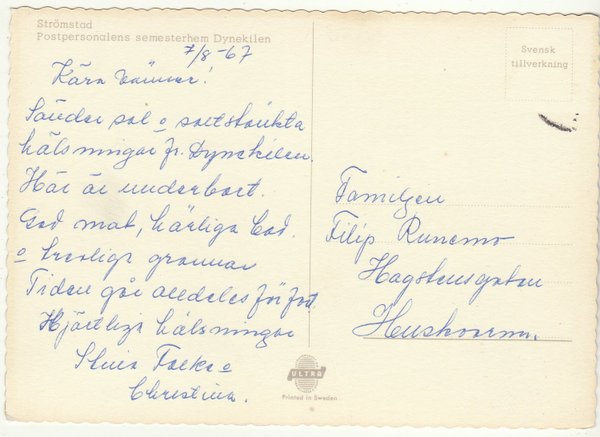 Strömstad
Postpersonalens semesterhem Dynekilen
7/8-67
Kära vänner!
Sänder sol o saltstänkta
hälsningar fr. Dynekilen.
Här är underbart.
God mat, härliga bad
o trevliga grannar
Tiden går alldeles för fort.
Hjärtliga hälsningar
Folke o
Christina.
Svensk
tillverkning
Familjen
Filip Runemo
Hagstensgatan
Huskvarna.
ULTRA
Printed in Sweden